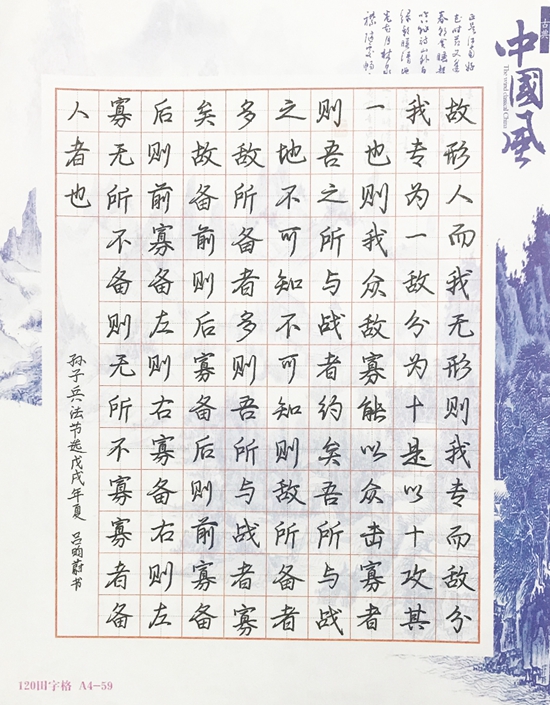 古典
中國風
The wind classical China
故形人而我无形则我专而敌分
我专为一敌分为十是以十攻其
一也则我众敌寡能以众击寡者
则吾之所与战者约矣吾所与战
之地不可知不可知则敌所备者
多敌所备者多则吾所与战者寡
矣故备前则后寡备后则前寡备
后则前寡备左则右寡备右则左
寡无所不备则无所不寡寡者备
人者也
孙子兵法节选戊戌年夏 吕明蔚书
120田字格 A4-59